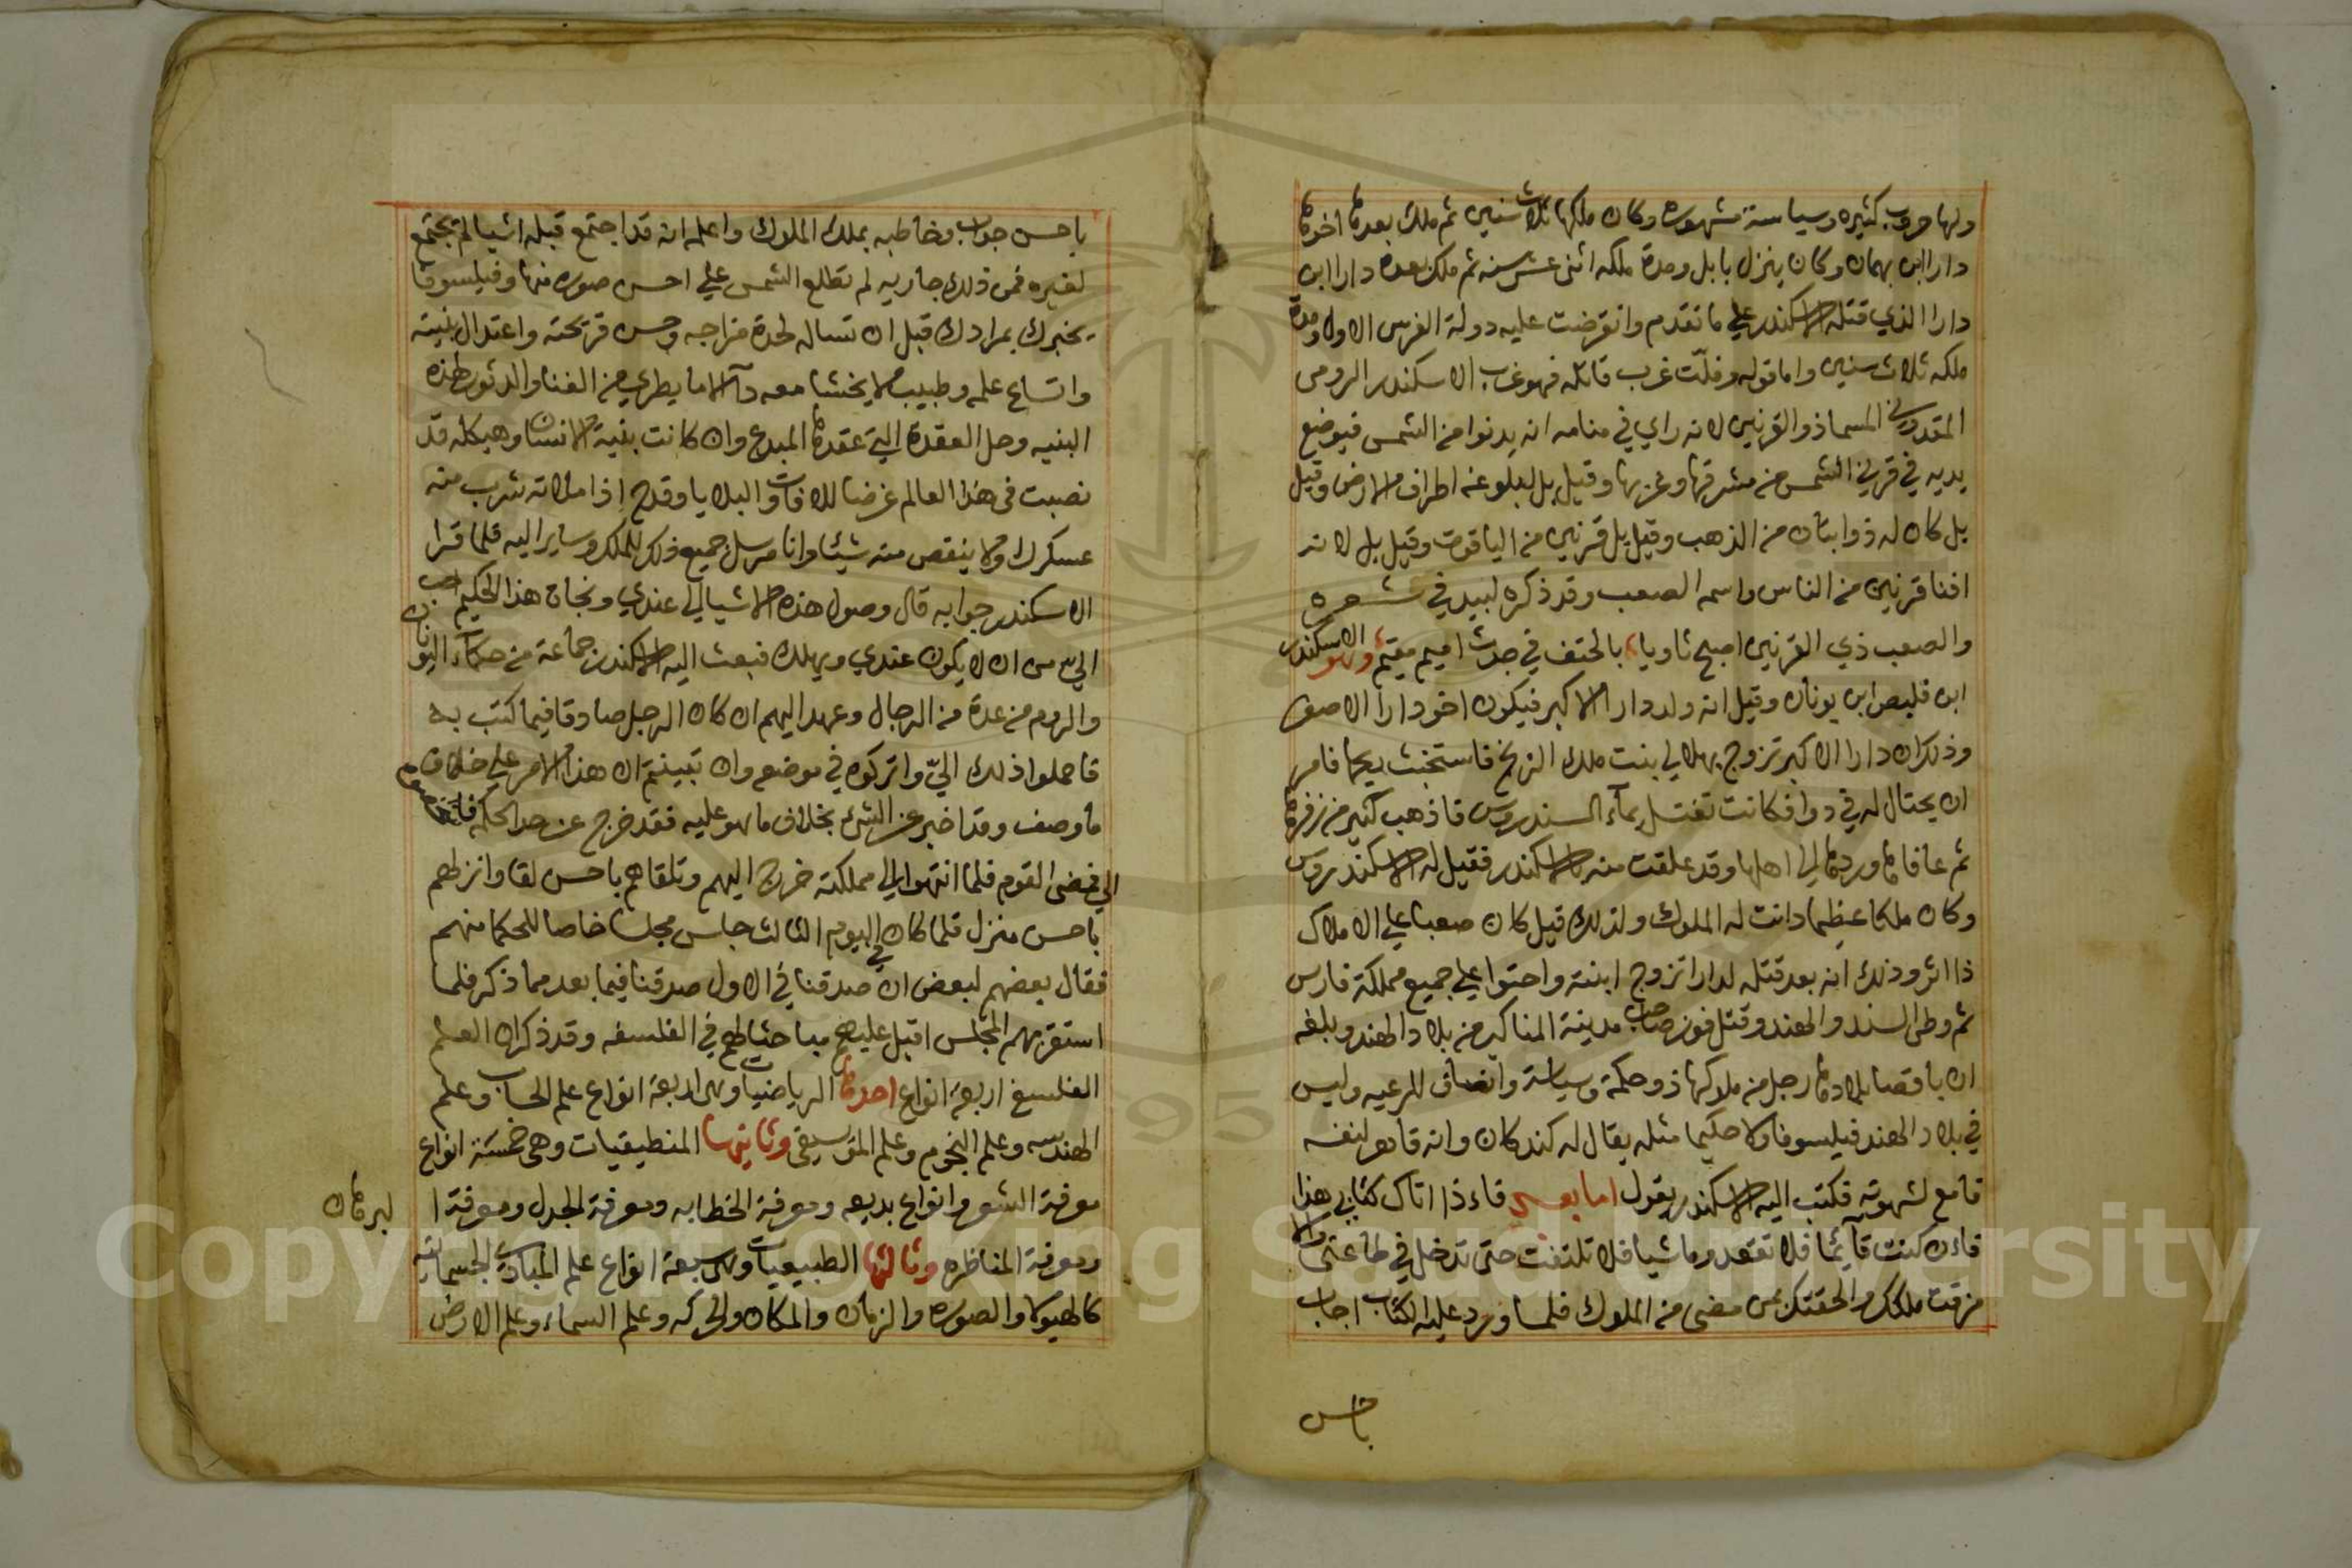 ولها حروب كثيره وسياسة مشهوره وكان ملكها ثلاث سنين ثم ملك بعدها اخوها
دارا ابن بهمان وكان ينزل بابل ومدة ملكه اثنى عشر سنه ثم ملك بعده دارا ابن
دارا الذي قتله الاسكندر علي ما تقدم وانقرضت عليه دولة الفرس الاولا ومدة
ملكه ثلاث سنين واما قوله وفلّت غرب قاتله فهو غرب الاسكندر الرومى
المقدوني المسما ذو القرنين لانه راي في منامه انه يدنوا من الشمس فيوضع
يديه في قرني الشمس من مشرقها وغربها وقيل بل لبلوغه اطراف الارض وقيل
بل كان له ذوابتان من الذهب وقيل بل قرنين من الياقوت وقيل بل لانه
افنا قرنين من الناس واسمه الصعب وقد ذكره لبيد في شعره
والصعب ذي القرنين اصبح ثاويا بالحتف في جدث اميم مقيم وهو الاسكندر
ابن فليص ابن يونان وقيل انه ولد دارا الاكبر فيكون اخو دارا الاصغر
وذلك ان دارا الاكبر تزوج بهلالي بنت ملك الزنج فاستخبث ريحها فامر
ان يحتال له في دوا فكانت تغتسل بماء السندروس فاذهب كثير من زفرها
ثم عافها وردها الى اهلها وقد علقت منه بالاسكندر فقيل له الاسكندروس
وكان ملكا عظيما دانت له الملوك ولذلك قيل كان صعبا علي الاملاك
ذا اثر وذلك انه بعد قتله لدارا تزوج ابنته واحتوا علي جميع مملكة فارس
ثم وطى السند والهند وقتل فور صاحب مدينة المناكير من بلاد الهند وبلغه
ان باقصا بلادها رجل من ملوكها ذو حكمة وسياسة وانصاف للرعيه وليس
في بلاد الهند فيلسوفا ولا حكيما مثله يقال له كند كان وانه قاهر لنفسه
قامع لشهوته فكتب اليه الاسكندر يقول اما بعد فاءذا اتاك كتابي هذا
فاءن كنت قآئما فلا تقعد وماشيا فلا تلتفت حتى تدخل في طاعتى والا
مزقت ملكك والحقتك بمن مضى من الملوك فلما ورد عليه الكتاب اجاب
باحسن
باحسن جواب وخاطبه بملك الملوك واعلمه انه قد اجتمع قبله اشيا لم تجتمع
لغيره فمن ذلك جاريه لم تطلع الشمس علي احسن صوره منها وفيلسوفا
يخبرك بمرادك قبل ان تساله لحدة مزاجه وحسن قريحته واعتدال بنيته
واتساع علمه وطبيب لا يخشا معه دآ الا ما يطري من الفنا والدثور لهذه
البنيه وحل العقدة التي عقدها المبدع وان كانت بنية الانسان وهيكله قد
نصبت فى هذا العالم غرضا للافات والبلايا وقدح اذا ملاته شرب منه
عسكرك ولا ينقص منه شيئا وانا مرسل جميع ذلك للملك وساير اليه فلما قرا
الاسكندر جوابه قال وصول هذه الاشيا الي عندي ونجاة هذا الحكيم احب
الي من ان لا يكون عندي ويهلك فبعث اليه الاسكندر جماعة من حكماء اليونان
والروم من عدة من الرجال وعهد اليهم ان كان الرجل صادقا فيما كتب به
فاحملوا ذلك اليّ واتركوه في موضعه وان تبينتم ان هذا الامر علي خلاف
ما وصف وقد اخبر عن الشئ بخلاف ما هو عليه فقد خرج عن حد الحكمه فاشخصوه
الي فمضى القوم فلما انتهوا الى مملكته خرج اليهم وتلقاهم باحسن لقا وانزلهم
باحسن منزل فلما كان في اليوم الثالث جلس مجلسا خاصا للحكما منهم
فقال بعضهم لبعض ان صدقنا في الاول صدقنا فيما بعد مما ذكر فلما
استقر بهم المجلس اقبل عليهم مباحثا لهم في الفلسفه وقد ذكر ان العلم
الفلسفي اربعة انواع احدها الرياضيات وهى اربعة انواع علم الحساب وعلم
الهندسه وعلم النجوم وعلم الموسيقى وثانيها المنطيقيات وهى خمسة انواع
معرفة الشعر وانواع بديعه ومعرفة الخطابه ومعرفة الجدل ومعرفة ا لبرهان
ومعرفة المناظره وثالثها الطبيعيات وهى سبعة انواع علم المبادي الجسمانيه
كالهيولا والصوره والزمان والمكان والحركه وعلم السماء وعلم الارض
Copyright © King Saud University
1957